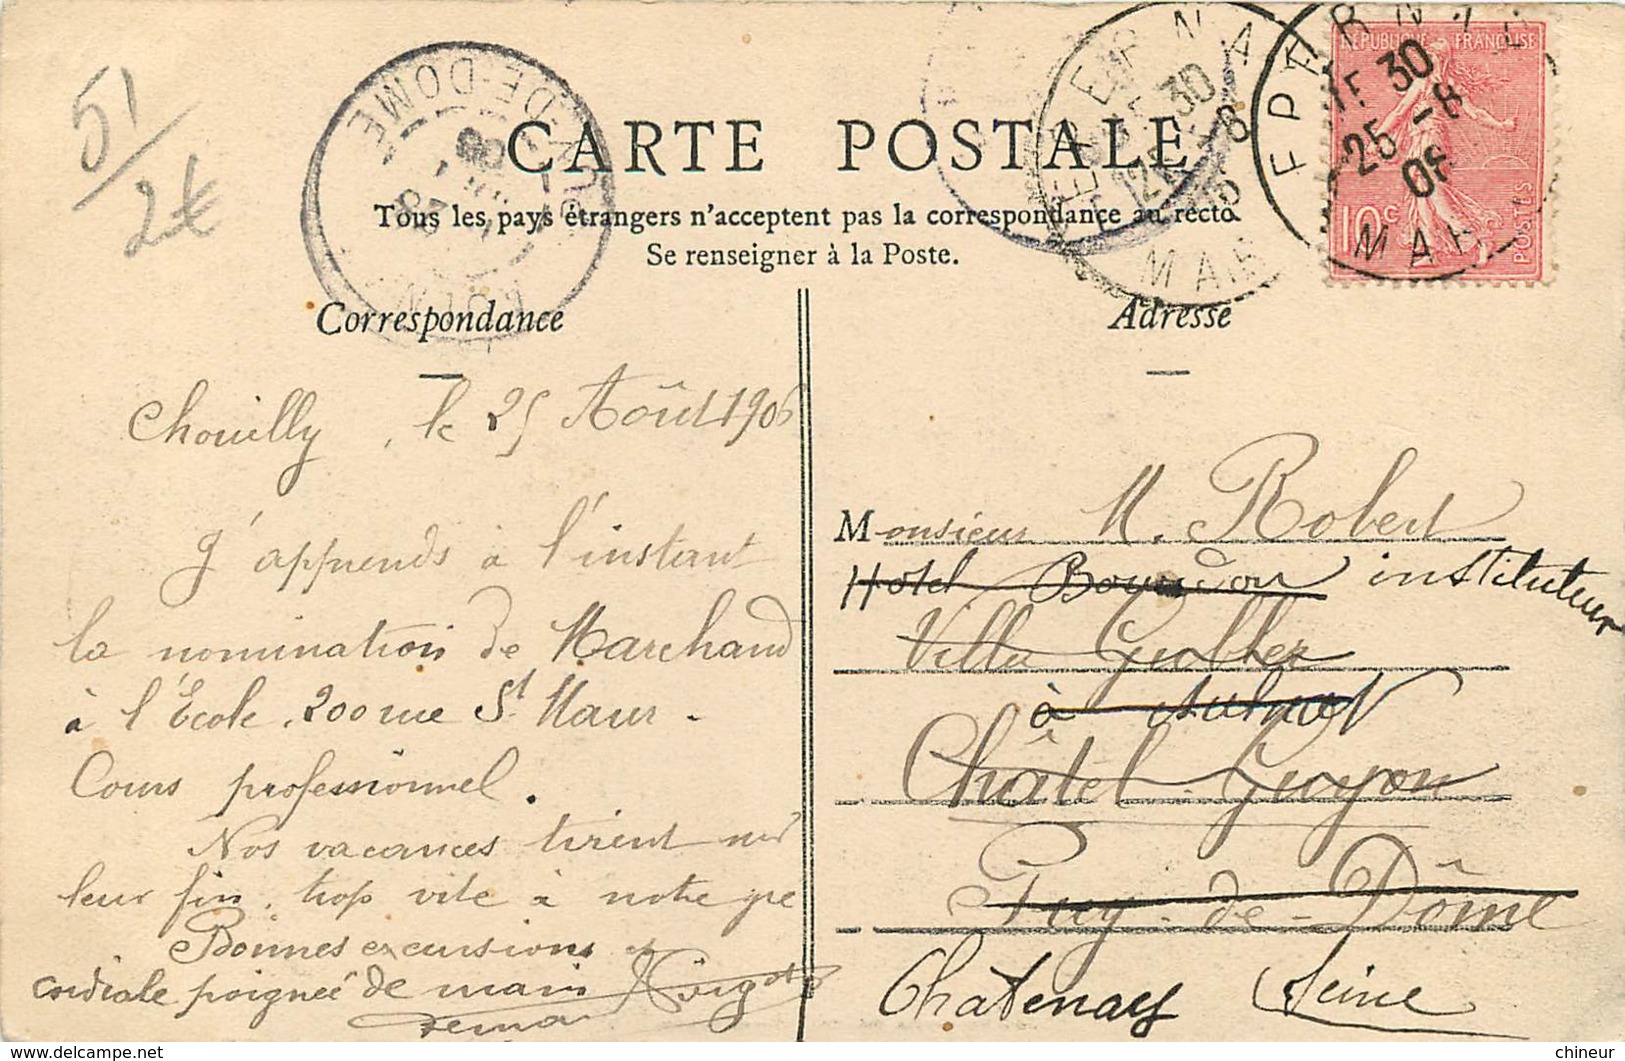 51/2€
CARTE POSTALE
Tous les pays étrangers n'acceptent pas la correspondance au recto.
Se renseigner à la Poste.
PUY-DE-DOME
EPERNAY
MAR
12E 30
EPERNAY
1E 30
25 -8
06
MAR
REPUBLIQUE FRANÇAISE
10c
POSTES
Correspondance
Chouilly, le 25 Août 1906
J'apprends à l'instant
la nomination de Marchand
à l'École, 200 rue St Maur.
Cours professionnel.
Nos vacances tirent vers
leur fin, trop vite à notre gré
Bonnes excursions et
cordiale poignée de main
Adresse
Monsieur M. Robert
Hotel Bourdon instituteur
Villa Gubler
à Aulnay
Châtel-Guyon
Puy-de-Dôme
Chatenay Seine
chineur